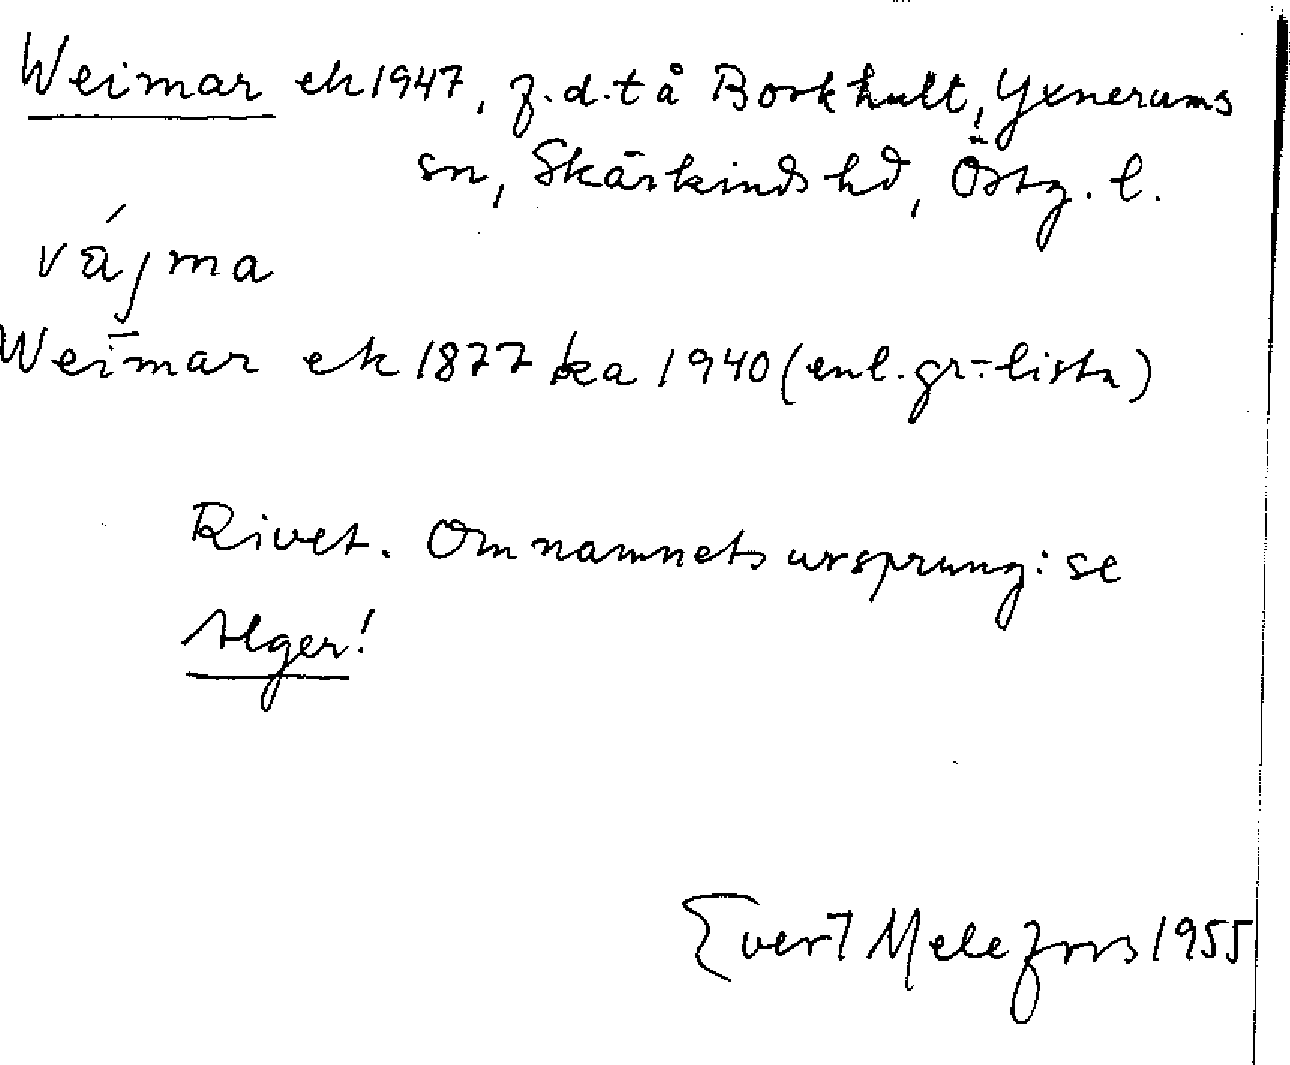 Weimar ek 1947, f.d.t å Borkhult, Yxnerums
sn, Skärkinds hd, Östg. l.
vájma
Weimar ek 1877 ka 1940 (enl. gr-lista)
Rivet. Om namnets ursprung: se
Alger!
Evert Melefors 1955